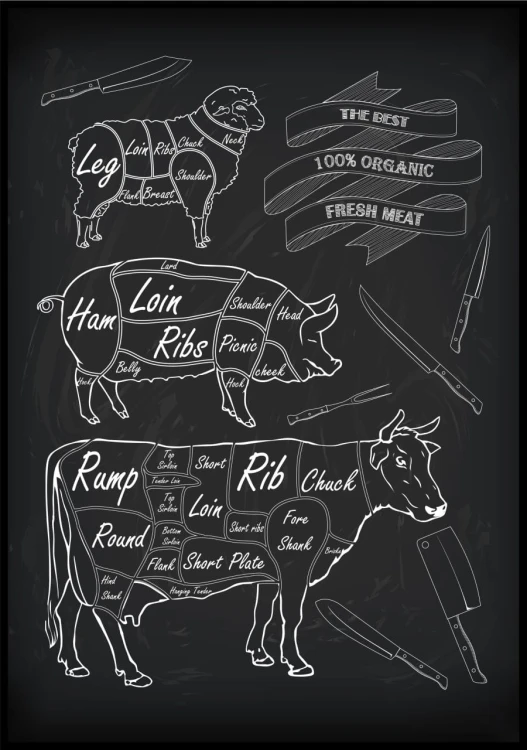 THE BEST
100% ORGANIC
FRESH MEAT
Leg
Loin
Ribs
Chuck
Neck
Shoulder
Flank
Breast
Lard
Ham
Loin
Ribs
Shoulder
Head
Picnic
cheek
Belly
Hock
Hock
Rump
Top
Sirloin
Tender Loin
Top
Sirloin
Bottom
Sirloin
Short
Loin
Rib
Chuck
Short ribs
Fore
Shank
Round
Flank
Short Plate
Hind
Shank
Hanging Tender